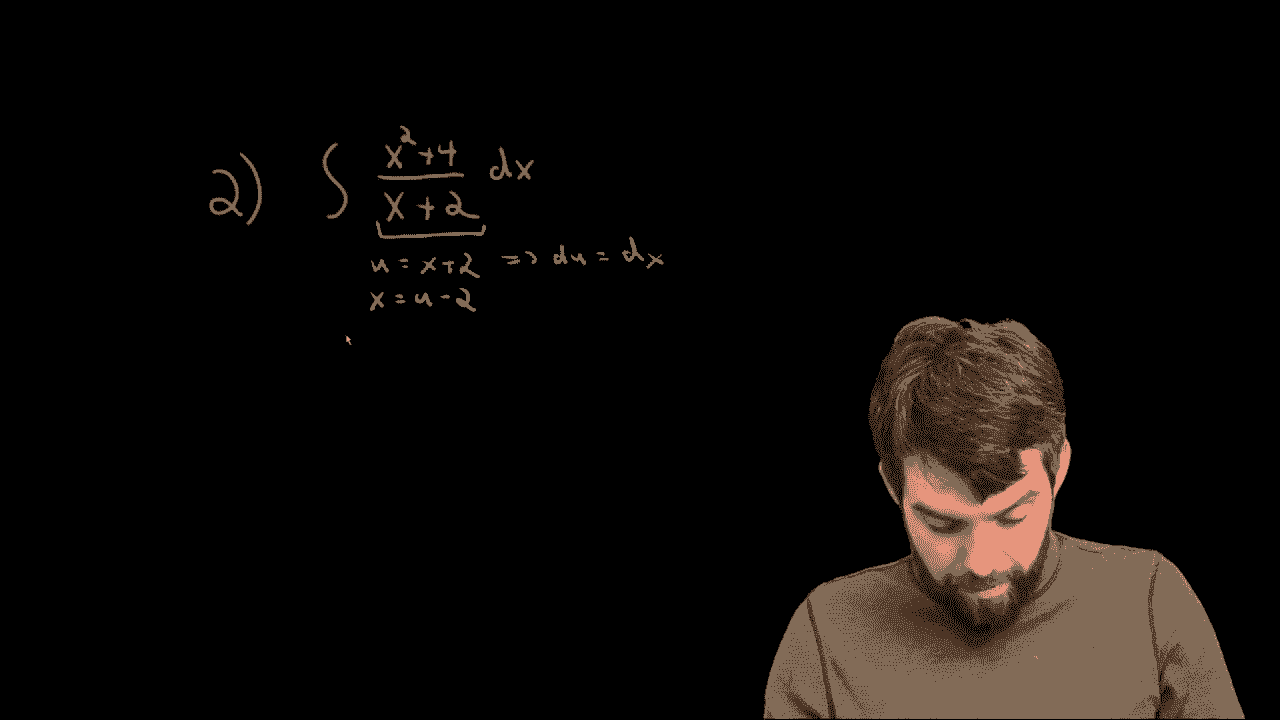 2) ∫ (x²+4)/(x+2) dx
u = x+2 => du = dx
x = u-2